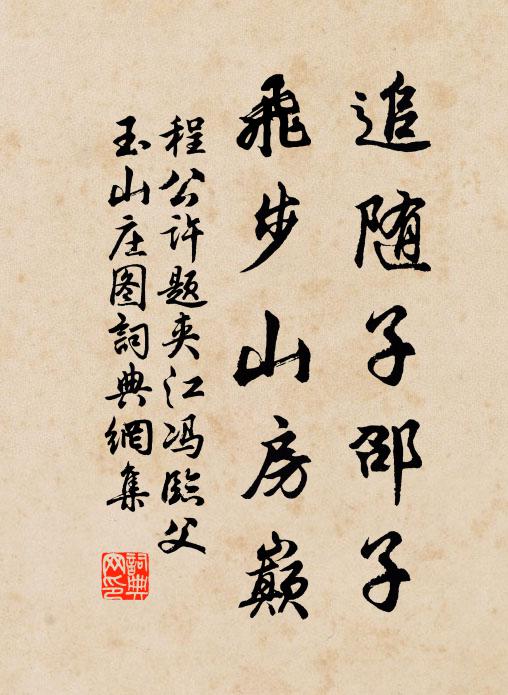 追随子邵子
飛步山房巔
程公许题夹江冯臨父
玉山庄图詞典網集
詞典
网印